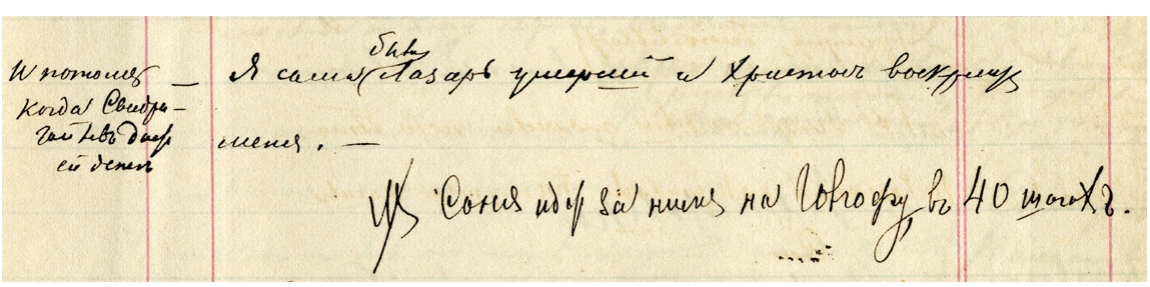 И потомъ
когда Свидри-
гайловъ даетъ
ей денегъ
былъ
— Я самъ Лазарь умершiй и Христосъ воскресилъ
меня. —
NB Соня идетъ за нимъ на Голгофу, въ 40 шагахъ.